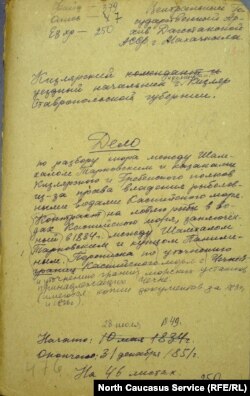 Фонд - 379
Опись - №7
Ед. хр - 250
Центральный го-
сударственный Ар-
хив Дагестанской
АССР г. Махачкала
Кизлярский комендант и
уездный начальник г. Кизляр
Ставропольской губернии.
Дело
по разбору спора между Шам-
халом Тарковским и казаками
Кизлярского и Гребенского полков
из-за права владения рыболов-
ными водами Каспийского моря.
Контракт на ловлю рыбы в во-
дах Каспийского моря, заключен-
ный в 1834г. между Шамхалом
Тарковским и купцом
моря о. Чечне
морских
документов за
Начато:
Окончено: 31 декабря 1851г.
На 46 листах
416
250
North Caucasus Service (RFE/RL)